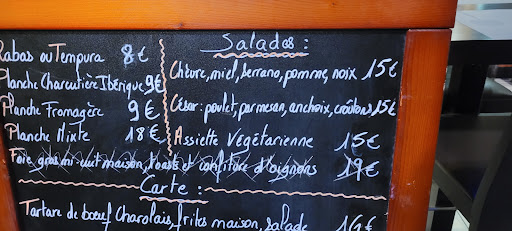 Rabas ou Tempura 8€
Planche Charcutière Ibérique 9€
Planche Fromagère 9€
Planche Mixte 18€
Salades :
Chèvre, miel, serrano, pomme, noix 15€
César : poulet, parmesan, anchoix, croûtons 15€
Assiette Végétarienne 15€
Foie gras mi-cuit maison, toasts et confiture d'oignons 19€
Carte :
Tartare de bœuf Charolais, frites maison, salade